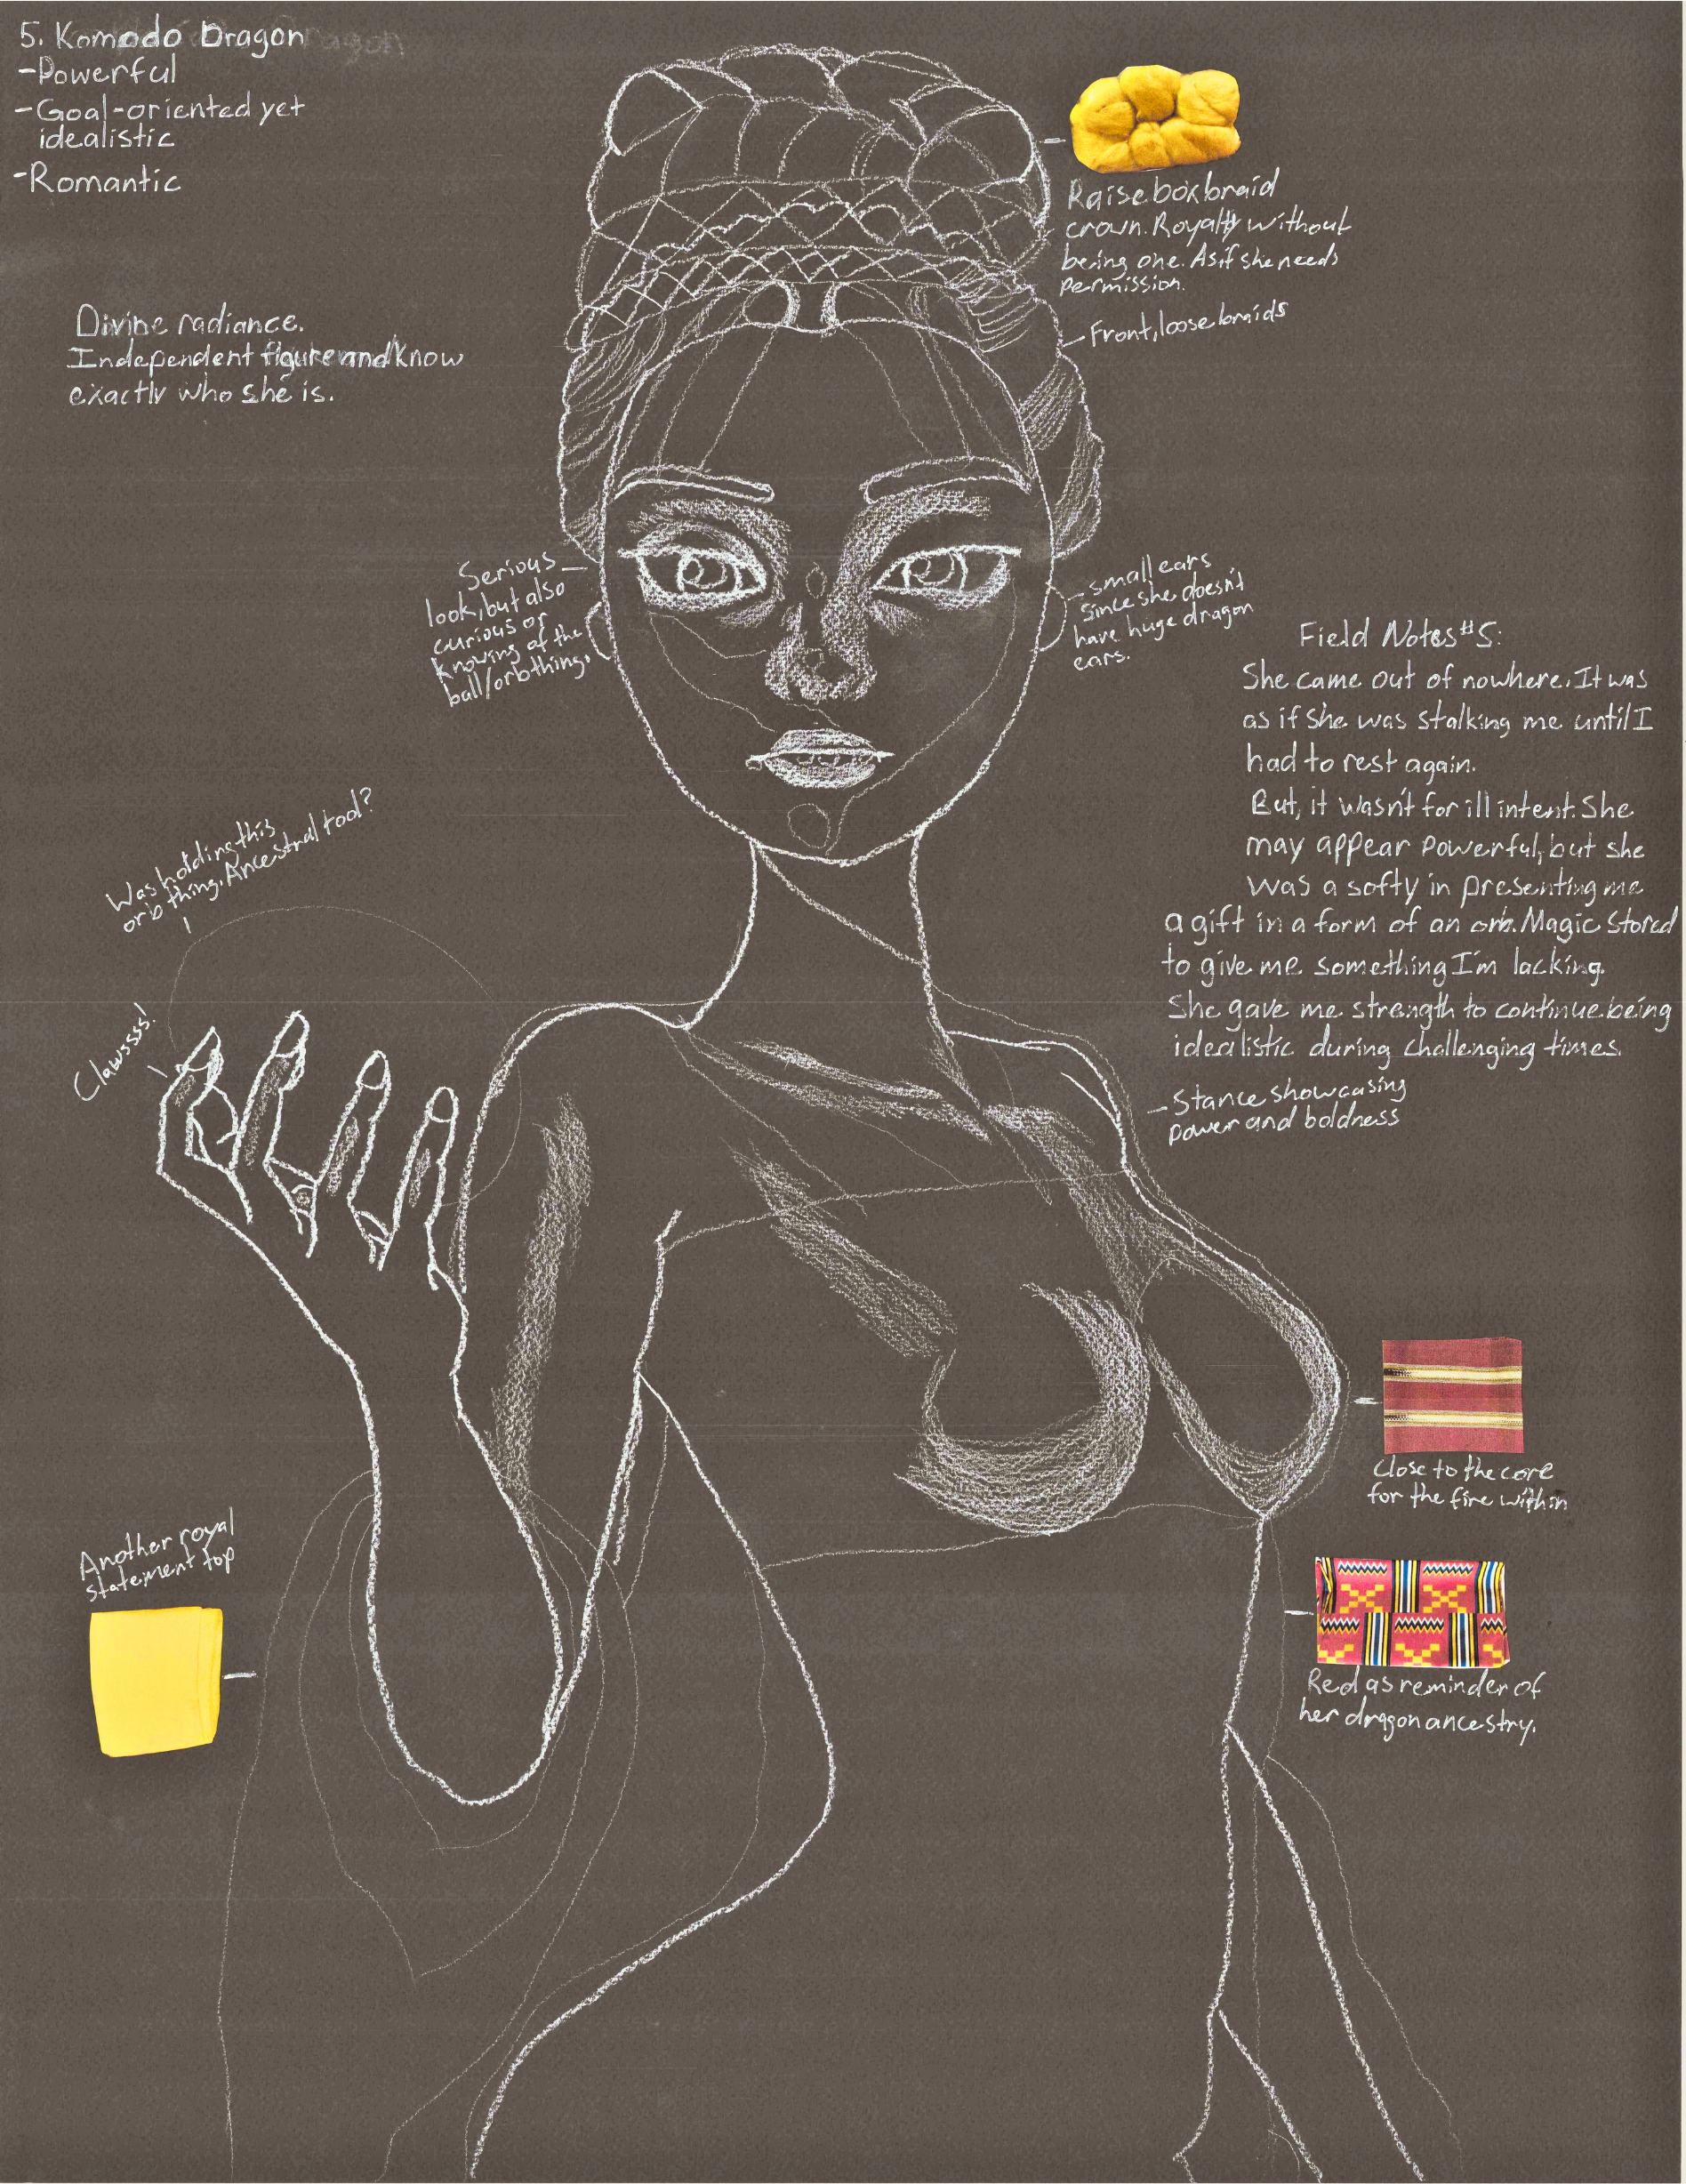 5. Komodo Dragon
-Powerful
-Goal-oriented yet
idealistic
-Romantic
Divine radiance.
Independent figure and know
exactly who she is.
Raise box braid
crown. Royalty without
being one. As if she needs
permission.
Front, loose braids
Serious
look, but also
curious or
knowing of the
ball/orb thing.
small ears
since she doesn't
have huge dragon
ears.
Field Notes #5:
She came out of nowhere. It was
as if she was stalking me until I
had to rest again.
But, it wasn't for ill intent. She
may appear powerful, but she
was a softy in presenting me
a gift in a form of an orb. Magic stored
to give me something I'm lacking.
She gave me strength to continue being
idealistic during challenging times.
Was holding this
orb thing. Ancestral tool?
Clawsss!
-Stance showcasing
power and boldness
Close to the core
for the fire within
Another royal
statement top
Red as reminder of
her dragon ancestry.